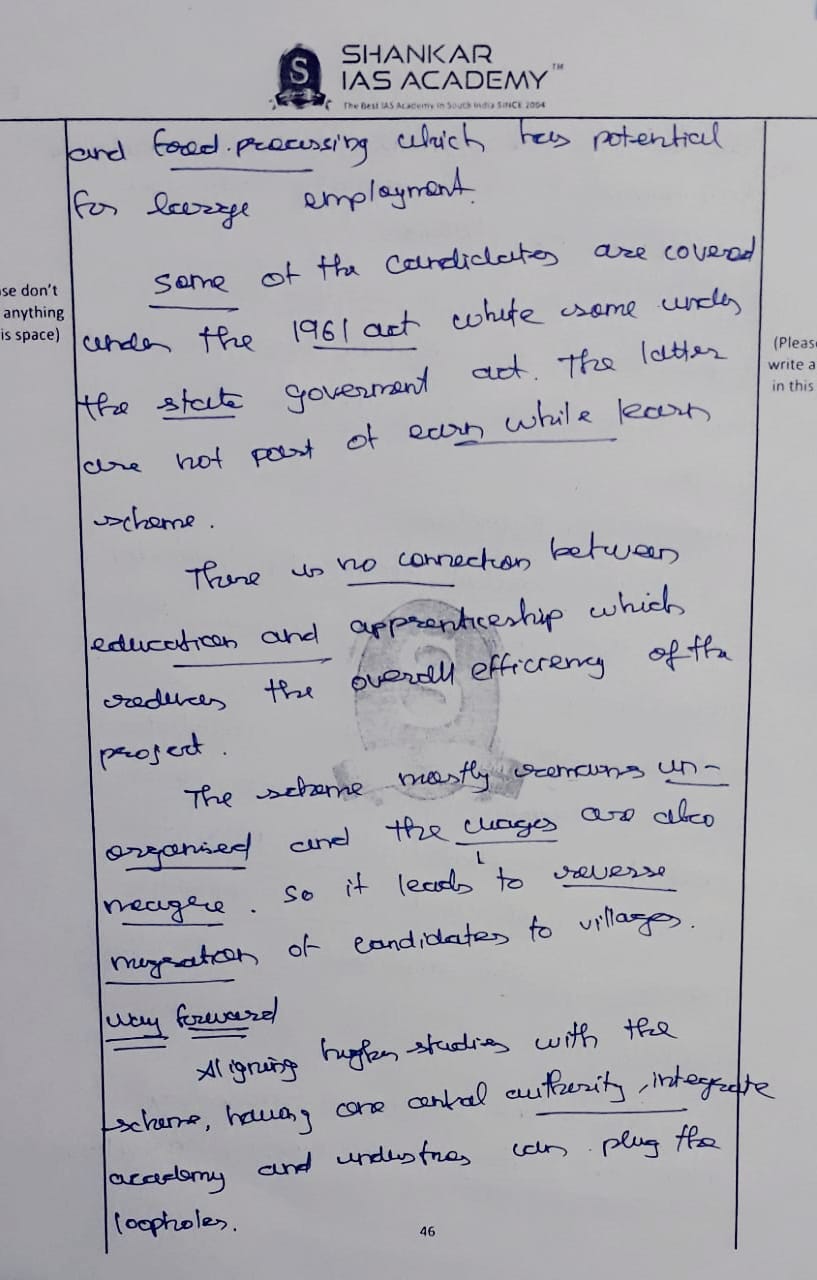 SHANKAR
IAS ACADEMY™
The Best IAS Academy in South India SINCE 2004
and food processing which has potential
for large employment.
some of the candidates are covered
under the 1961 act while some under
the state goverment act. The latter
are not part of earn while learn
scheme.
There is no connection between
education and apprenticeship which
reduces the overall efficiency of the
project.
The scheme mostly remains un-
organised and the wages are also
meagere. So it leads to reverse
migration of candidates to villages.
way forward
Aligning higher studies with the
scheme, having one central authority, integrate
academy and industries can plug the
loopholes.
46
se don't
anything
is space)
(Pleas
write a
in this